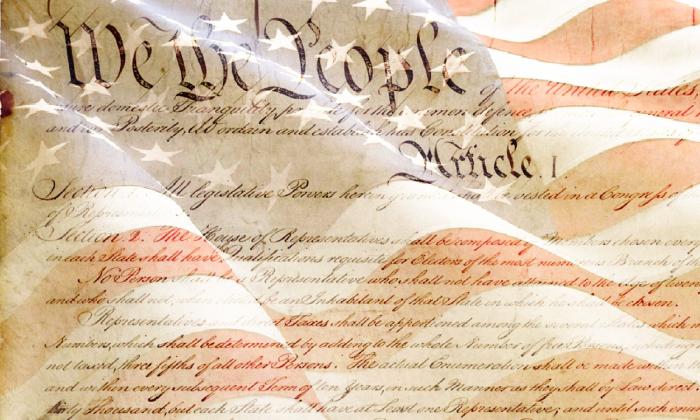 We the People of the United States,
sure domestic Tranquility, provide for the common defence,
and our Posterity, do ordain and establish this Constitution for the
Article. I.
Section. 1. All legislative Powers herein granted shall be vested in a Congress
of Represen
Section. 2. The House of Representatives shall be composed of Members chosen every
in each State shall have Qualifications requisite for Electors of the most numerous Branch of
No Person shall be a Representative who shall not have attained to the Age of twenty
and who shall not, when elected, be an Inhabitant of that State in which he shall be chosen.
Representatives and direct Taxes shall be apportioned among the several States which
Numbers, which shall be determined by adding to the whole Number of free Persons, including
not taxed, three fifths of all other Persons. The actual Enumeration shall be made
and within every subsequent Term of ten Years, in such Manner as they shall by Law direct.
thirty Thousand, but each State shall have at Least one Representative; and until